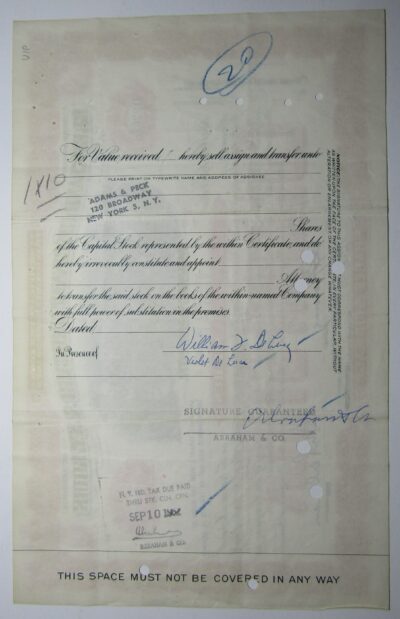 VIP
20
For Value received, hereby sell, assign and transfer unto
PLEASE PRINT OR TYPEWRITE NAME AND ADDRESS OF ASSIGNEE
1X10
ADAMS & PECK
120 BROADWAY
NEW YORK 5, N. Y.
Shares
of the Capital Stock represented by the within Certificate, and do
hereby irrevocably constitute and appoint
Attorney
to transfer the said stock on the books of the within-named Company
with full power of substitution in the premises.
Dated
In Presence of
William J. De Luca
Violet De Luca
SIGNATURE GUARANTEED
ABRAHAM & CO.
N. Y. NO. TAX DUE PAID
THRU STK. CLR. CPN.
SEP 10
ABRAHAM & CO.
NOTICE: THE SIGNATURE TO THIS ASSIGN
MUST CORRESPOND WITH THE NAME
AS WRITTEN UPON THE FACE OF THE CERTIF
IN EVERY PARTICULAR WITHOUT
ALTERATION OR ENLARGEMENT OR ANY CHANGE WHATEVER.
THIS SPACE MUST NOT BE COVERED IN ANY WAY